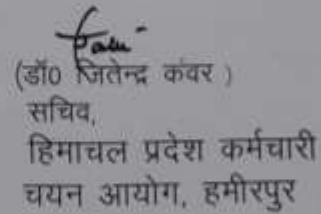 (डॉ0 जितेन्द्र कंवर )
सचिव,
हिमाचल प्रदेश कर्मचारी
चयन आयोग, हमीरपुर